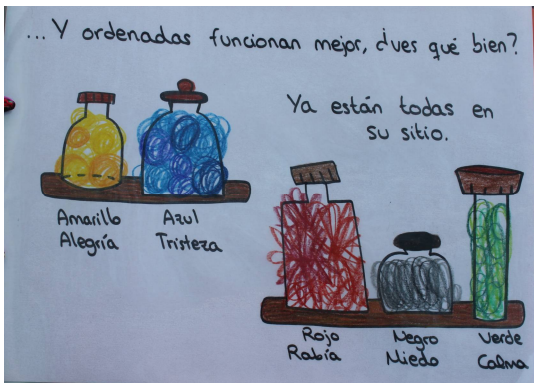 ...Y ordenadas funcionan mejor, ¿ves qué bien?
Ya están todas en
su sitio.
Amarillo
Alegría
Azul
Tristeza
Rojo
Rabía
Negro
Miedo
Verde
Calma